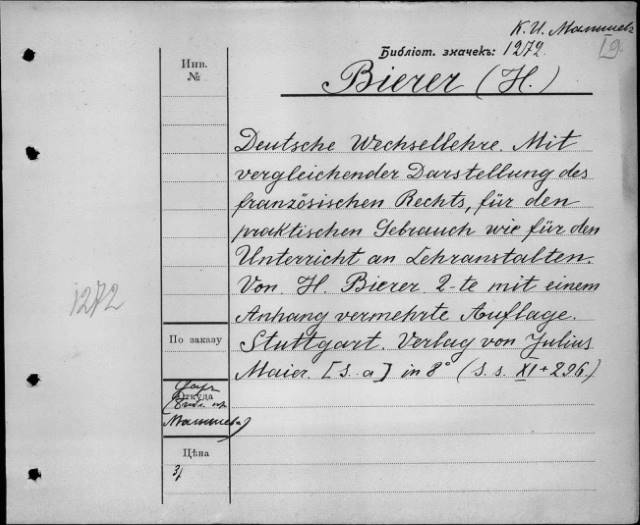 К. И. Малышев
Библіот. значекъ: 1272
Инв.
№
Bierer (H.)
Deutsche Wechsellehre. Mit
vergleichender Darstellung des
französischen Rechts, für den
praktischen Gebrauch wie für den
Unterricht an Lehranstalten.
Von H. Bierer 2-te mit einem
1272
Anhang vermehrte Auflage.
По заказу
Stuttgart. Verlag von Julius
Maier. [s. a] in 8° (S. s. XI + 296.)
Откуда
Малышева)
Цѣна